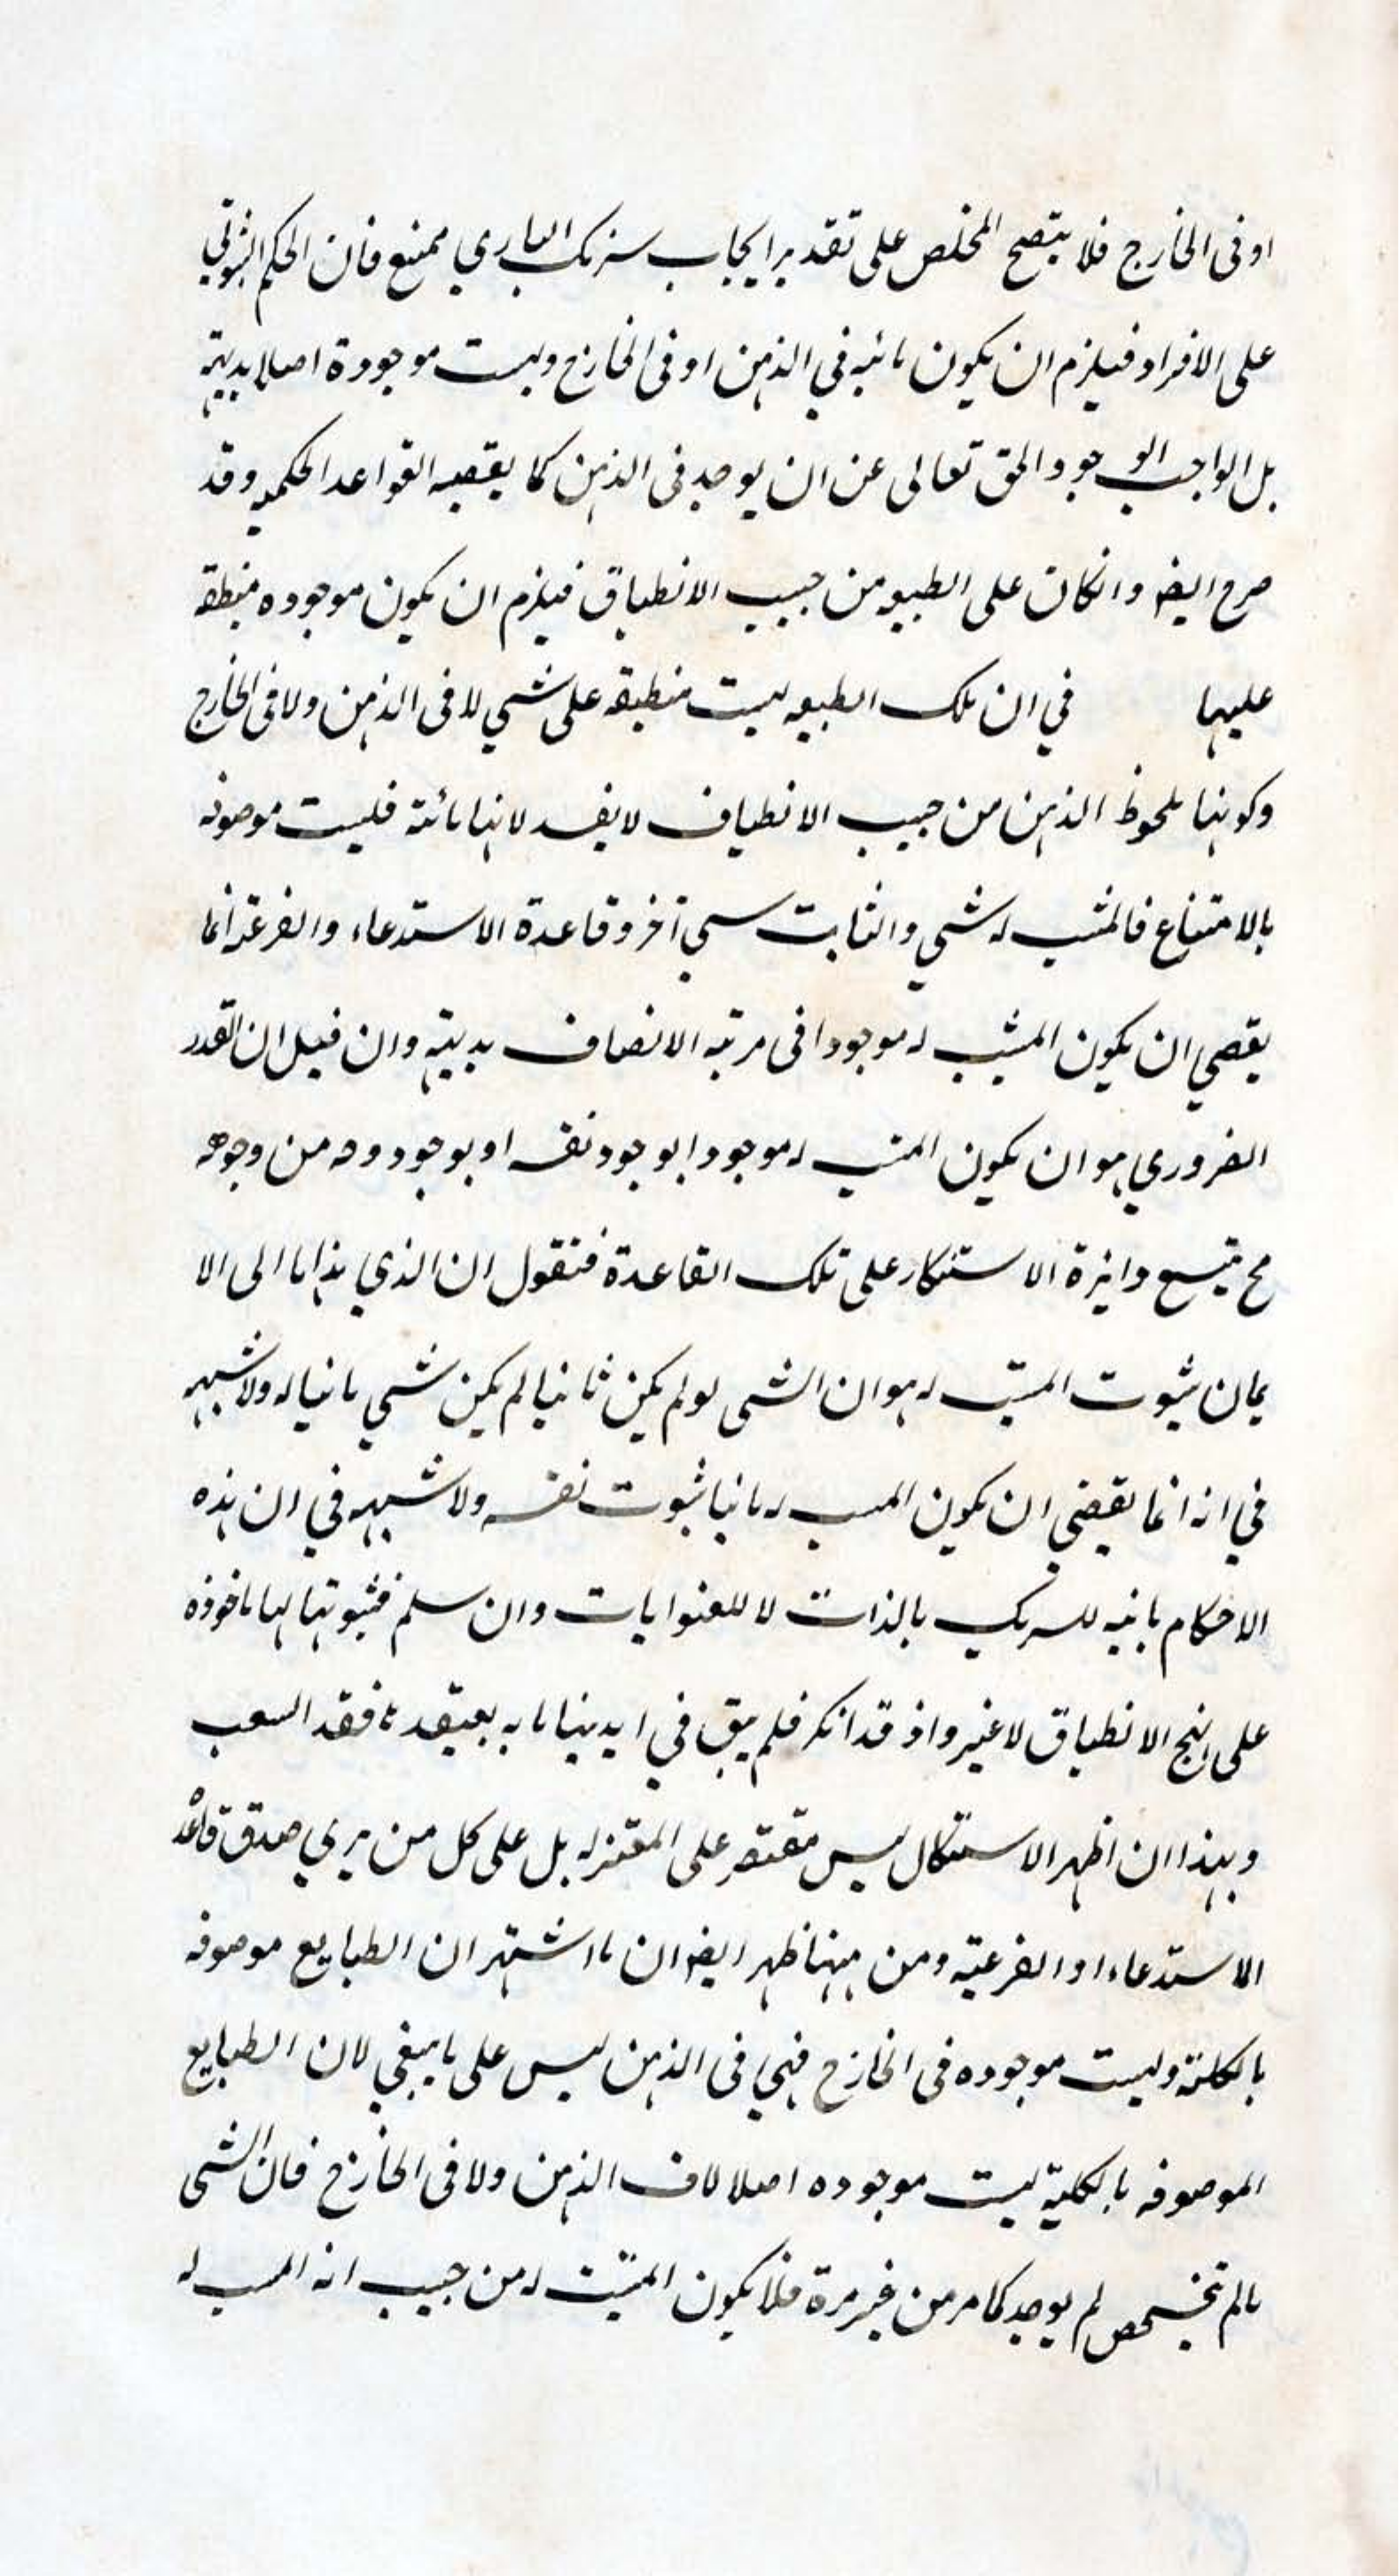 او فى الخارج فلا يتصح المخلص على تقدير ايجاب شريك البارى ممتنع فان الحكم الثبوتى
على الافراد فيلزم ان يكون ثابته في الذهن او فى الخارج وليست موجودة اصلا بديهة
بل الواجب الوجود الحق تعالى عن ان يوجد فى الذهن كما يقتضيه القواعد الحكميه وقد
صرح ايضا وانكان على الطبيعه من حيث الانطباق فيلزم ان يكون موجوده منطبقه
عليها في ان تلك الطبيعه ليست منطبقه على شي لا فى الذهن ولا فى الخارج
وكونها ملحوظ الذهن من حيث الانطباق لا يفيد لانها فليست موصوفه
بالامتناع فالمثبت له شي والثابت شي آخر وقاعدة الاستدعاء والفرعية انما
يقتضي ان يكون المثبت له موجودا فى مرتبه الاتصاف بديهة وان قيل ان القدر
الضروري هو ان يكون المثبت له موجودا بوجود نفسه او بوجود وجه من وجوهه
مح يتسع دايرة الاستنكار على تلك القاعدة فنقول ان الذي هدانا الى الا
يمان ثبوت المثبت له هو ان الشى لو لم يكن ثابتا لم يكن شي ثابتا له ولا شبهه
في انه انما يقتضي ان يكون المثبت له ثابتا ثبوت نفسه ولا شبهه في ان هذه
الاحكام ثابته للشريك بالذات لا للعنوانات وان سلم فثبوتها لها ماخوذه
على نهج الانطباق لا غير واذ قد انكر فلم يبق في ايدينا ما به يعتقد فقد
وبهذا ان اظهر الاستشكال ليس مقتصر على المعتزله بل على كل من يري صدق قاعدة
الاستدعاء او الفرعية ومن ههنا ظهر ايضا ان ما اشتهر ان الطبايع موصوفه
بالكلية وليست موجوده فى الخارج فهي فى الذهن ليس على ما ينبغي لان الطبايع
الموصوفه بالكلية ليست موجوده اصلا لا فى الذهن ولا فى الخارج فان الشى
ما لم يتشخص لم يوجد كما مر من غير مرة فلا يكون المثبت له من حيث انه المثبت له